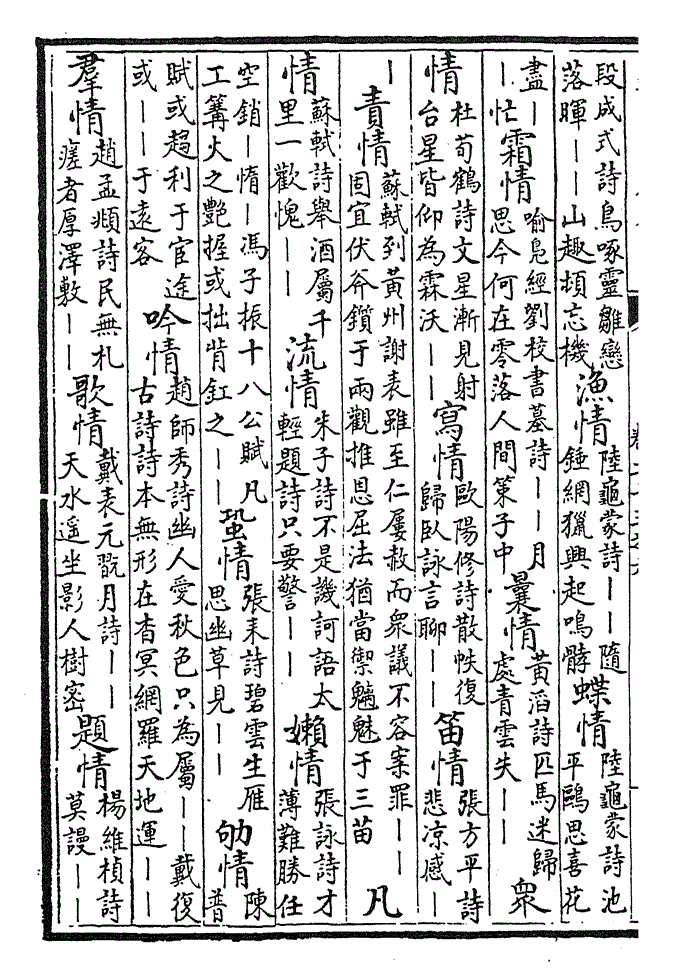 段成式詩鳥啄靈雛戀
落暉——山趣頓忘機
漁情
陸龜蒙詩——隨
錘網獵興起鳴髇
蝶情
陸龜蒙詩池
平鷗思喜花
盡—
—忙
霜情
喻鳧經劉校書墓詩——月
思今何在零落人間第子中
曩情
黃滔詩匹馬迷歸
處青雲失——
衆
情
杜荀鶴詩文星漸見射
台星皆仰為霖沃——
寫情
歐陽修詩散帙復
歸臥詠言聊——
笛情
張方平詩
悲凉感—
—
責情
蘇軾到黃州謝表雖至仁屢赦而衆議不容案罪——
固宜伏斧鑕于兩觀推恩屈法猶當禦魑魅于三苗
凡
情
蘇軾詩舉酒屬千
里一歡愧——
流情
朱子詩不是譏訶語太
輕題詩只要警——
嬾情
張詠詩才
薄難勝任
空銷—惰—馮子振十八公賦凡
工篝火之艷握或拙肯釭之——
蛩情
張耒詩碧雲生雁
思幽草見——
劬情
陳
普
賦或趨利于宦途
或——于遠客
吟情
趙師秀詩幽人愛秋色只為屬——戴復
古詩詩本無形在杳冥網羅天地運——
羣情
趙孟頫詩民無札
瘥者厚澤敷——
歌情
戴表元翫月詩——
天水遥坐影人樹密
題情
楊維楨詩
莫謾——